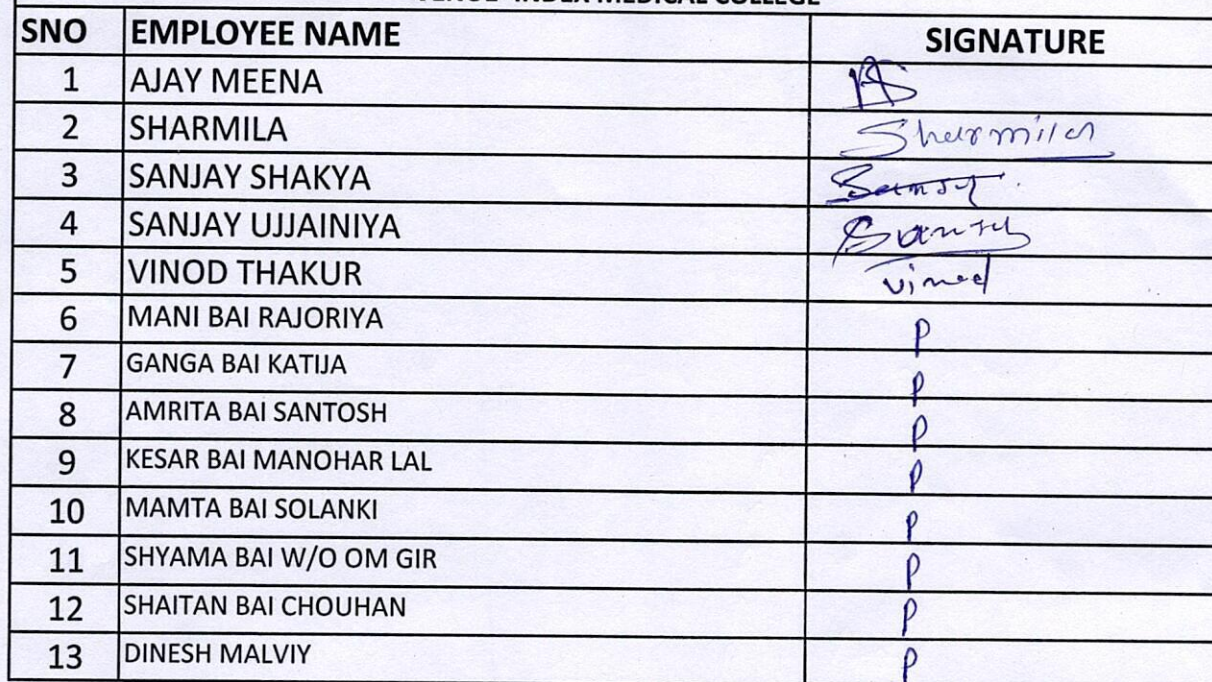 VENUE - INDEX MEDICAL COLLEGE
SNO EMPLOYEE NAME SIGNATURE
1 AJAY MEENA
2 SHARMILA Sharmila
3 SANJAY SHAKYA Sanjay
4 SANJAY UJJAINIYA Sanjay
5 VINOD THAKUR vinod
6 MANI BAI RAJORIYA P
7 GANGA BAI KATIJA P
8 AMRITA BAI SANTOSH P
9 KESAR BAI MANOHAR LAL P
10 MAMTA BAI SOLANKI P
11 SHYAMA BAI W/O OM GIR P
12 SHAITAN BAI CHOUHAN P
13 DINESH MALVIY P